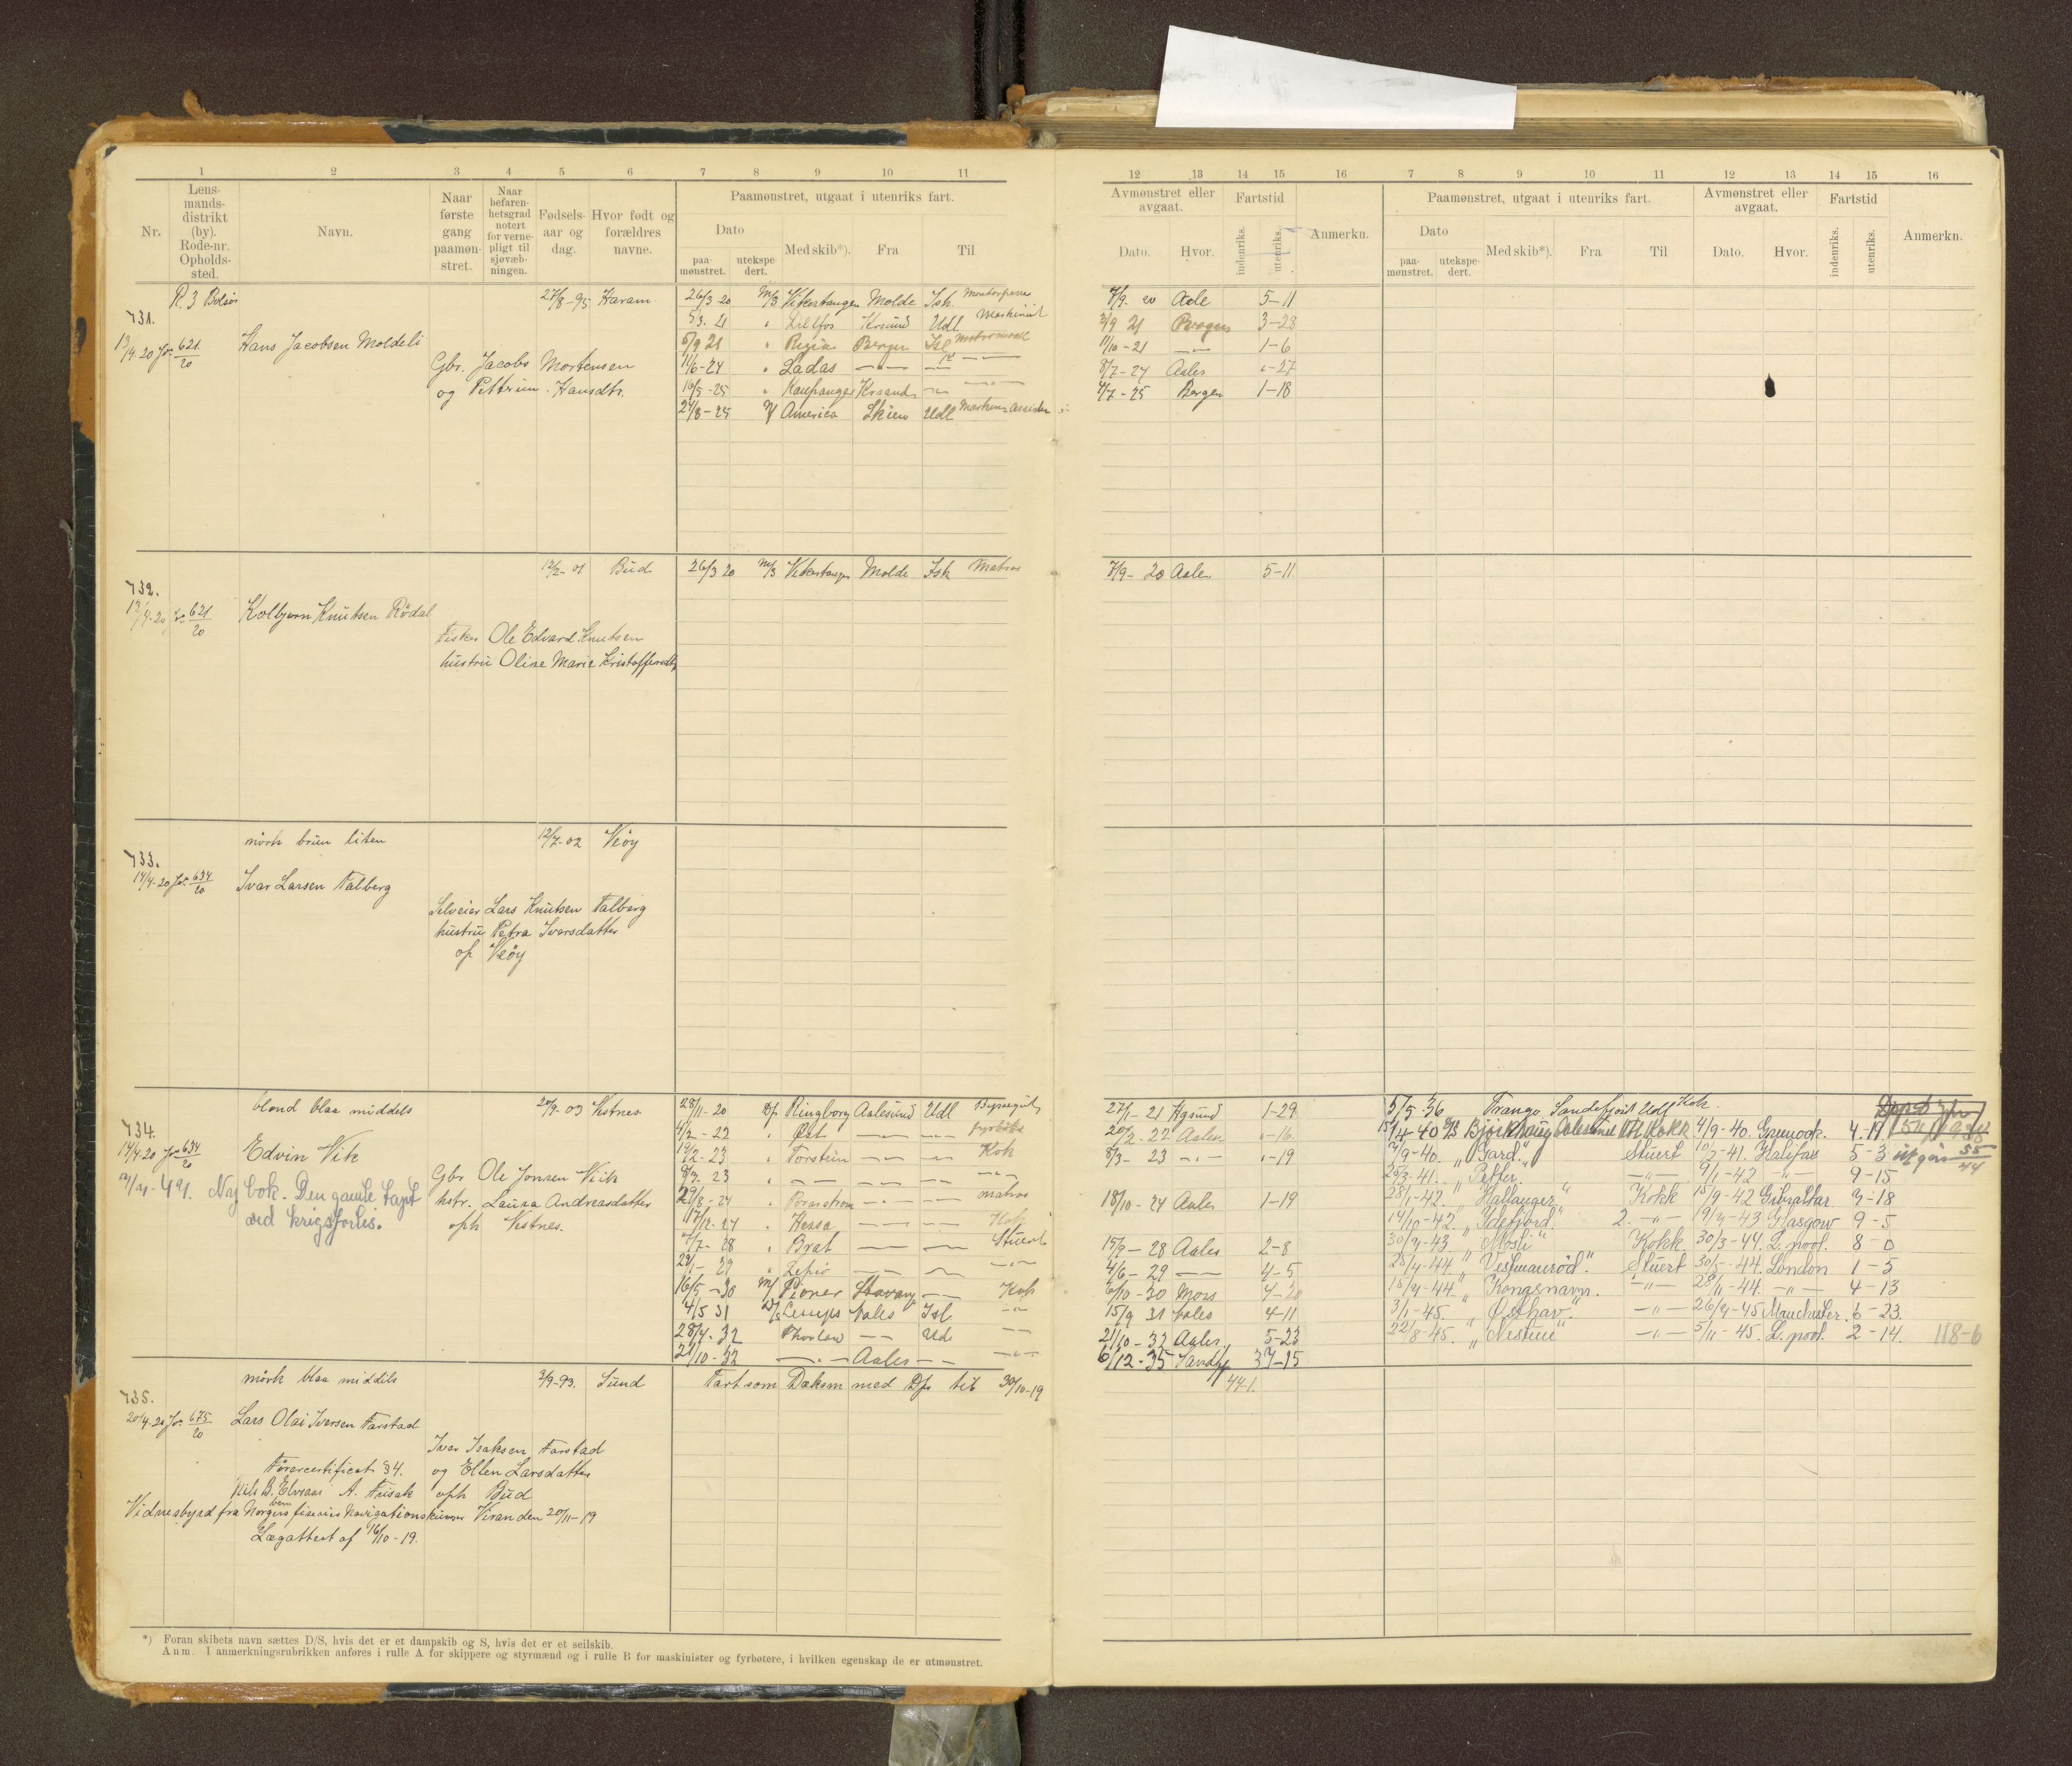 1 2 3 4 5 6 7 8 9 10 11
Nr. Lensmandsdistrikt (by). Rode-nr. Opholdssted. Navn. Naar første gang paamønstret. Naar befarenhetsgrad notert for vernepligt til sjøvæbningen. Fødselsaar og dag. Hvor født og forældres navne. Paamønstret, utgaat i utenriks fart.
Dato paamønstret. utekspedert. Med skib*). Fra Til
12 13 14 15 16 7 8 9 10 11 12 13 14 15 16
Avmønstret eller avgaat. Dato. Hvor. Fartstid indenriks. utenriks. Anmerkn. Paamønstret, utgaat i utenriks fart. Dato paamønstret. utekspedert. Med skib*). Fra Til Avmønstret eller avgaat. Dato. Hvor. Fartstid indenriks. utenriks. Anmerkn.
R. 3 Bolsø 27/8-95 Haram 26/3-20 M/S Vikertangen Molde Ish. 7/9 20 Aale 5-11
731. 5/3. 21 " Lillfos Krsund Udl Maskinist 3/9 21 Bergen 3-28
13/4-20 Jr. 621/20 Hans Jacobsen Moldeli 5/9 21 " Bergen 11/10-21 1-6
Gbr. Jacobs Mortensen 11/6-24 " Ladas 8/7-24 Aales "-27
og Pettrine Hansdtr. 16/5-25 " Kaupanger Krsand 4/7-25 Bergen 1-18
24/8-25 America Skien Udl
12/2-01 Bud 26/3 20 M/S Vikertangen Molde Ish Matros 7/9-20 Aales 5-11
732.
13/4-20 Jr. 621/20 Kolbjørn Knutsen Rødal
Fisker Ole Edvard Knutsen
hustru Oline Marie Kristoffersdtr
mörk brun liten 12/7-02 Veöy
733.
14/4-20 Jr. 634/20 Ivar Larsen Talberg
Selveier Lars Knutsen Talberg
hustru Petra Ivarsdatter
op Veöy
blond blaa middels 20/9-03 Vestnes 28/11-20 D/s Ringborg Aalesund Udl 27/1-21 Hgsund 1-29 5/5-36 Trango Sandefjord Udl Kok.
734. 4/2-22 " Öst fyrböter 20/2-22 Aalen "-16 15/4-40 M/S Bjørkhaug Aalesund Utl Kokk 4/9-40. Greenock. 4-19
14/4-20 Jr. 634/20 Edvin Vik 12/2-23 " Torstein Kok 8/3-23 "-19 /9-40. " Gard." Stuert /2-41. Halifax 5-3 utgår 55/44
Gbr Ole Jonsen Viik 8/3-23 25/3-41. " Petter. 9/1-42 9-15
-49. Ny bok. Den gamle tapt hstr. Laura Andreasdatter 29/8-24 " matros 18/10-24 Aales 1-19 28/1-42. " Hallanger " Kokk 15/9-42 Gibraltar 7-18
ved krigsforlis. oph Vestnes. 17/12-27 " Hessa Kok 14/10-42. " Idefjord." 2. 19/7-43 Glasgow 9-5
7/7-28 " Brat Stuert 15/9-28 Aales 2-8 30/7-43. " Mosli " Kokk 30/3-44. L.pool. 8-0
29/1-29 4/6-29 4-5 25/4-44 " Vestmanrød." Stuert 30/5-44. London 1-5
16/5-30 M/ Pioner Stavang Kok 6/10-30 Moss 4-20 15/7-44. " Kongsnavn. 28/11-44. 4-13
4/5 31 Aales Isl 15/9 31 Aales 4-11 3/1-45. " Østhav". 26/7-45 Manchester. 6-23.
28/4-32 Thorlow Udl 21/10-32 Aales 5-23 22/8-45. " Nestun" 5/11-45. L.pool. 2-14. 118-6
21/10-32 Aales 6/12-35 Sandfj 37-15
mörk blaa middels 3/9-93. Sund Fart som Dæksm med D/s til 30/10-19 44-1.
735.
20/4-20 Jr. 675/20 Lars Olai Iversen Farstad
Iver Isaksen Farstad
Førercertificat § 4. og Ellen Larsdatter
oph Bud
Vidnesbyrd fra Norges Navigationskursus 20/11-19
Lægattest af 16/10-19.
*) Foran skibets navn sættes D/S, hvis det er et dampskib og S, hvis det er et seilskib.
Anm. I anmerkningsrubrikken anføres i rulle A for skippere og styrmænd og i rulle B for maskinister og fyrbøtere, i hvilken egenskap de er utmønstret.